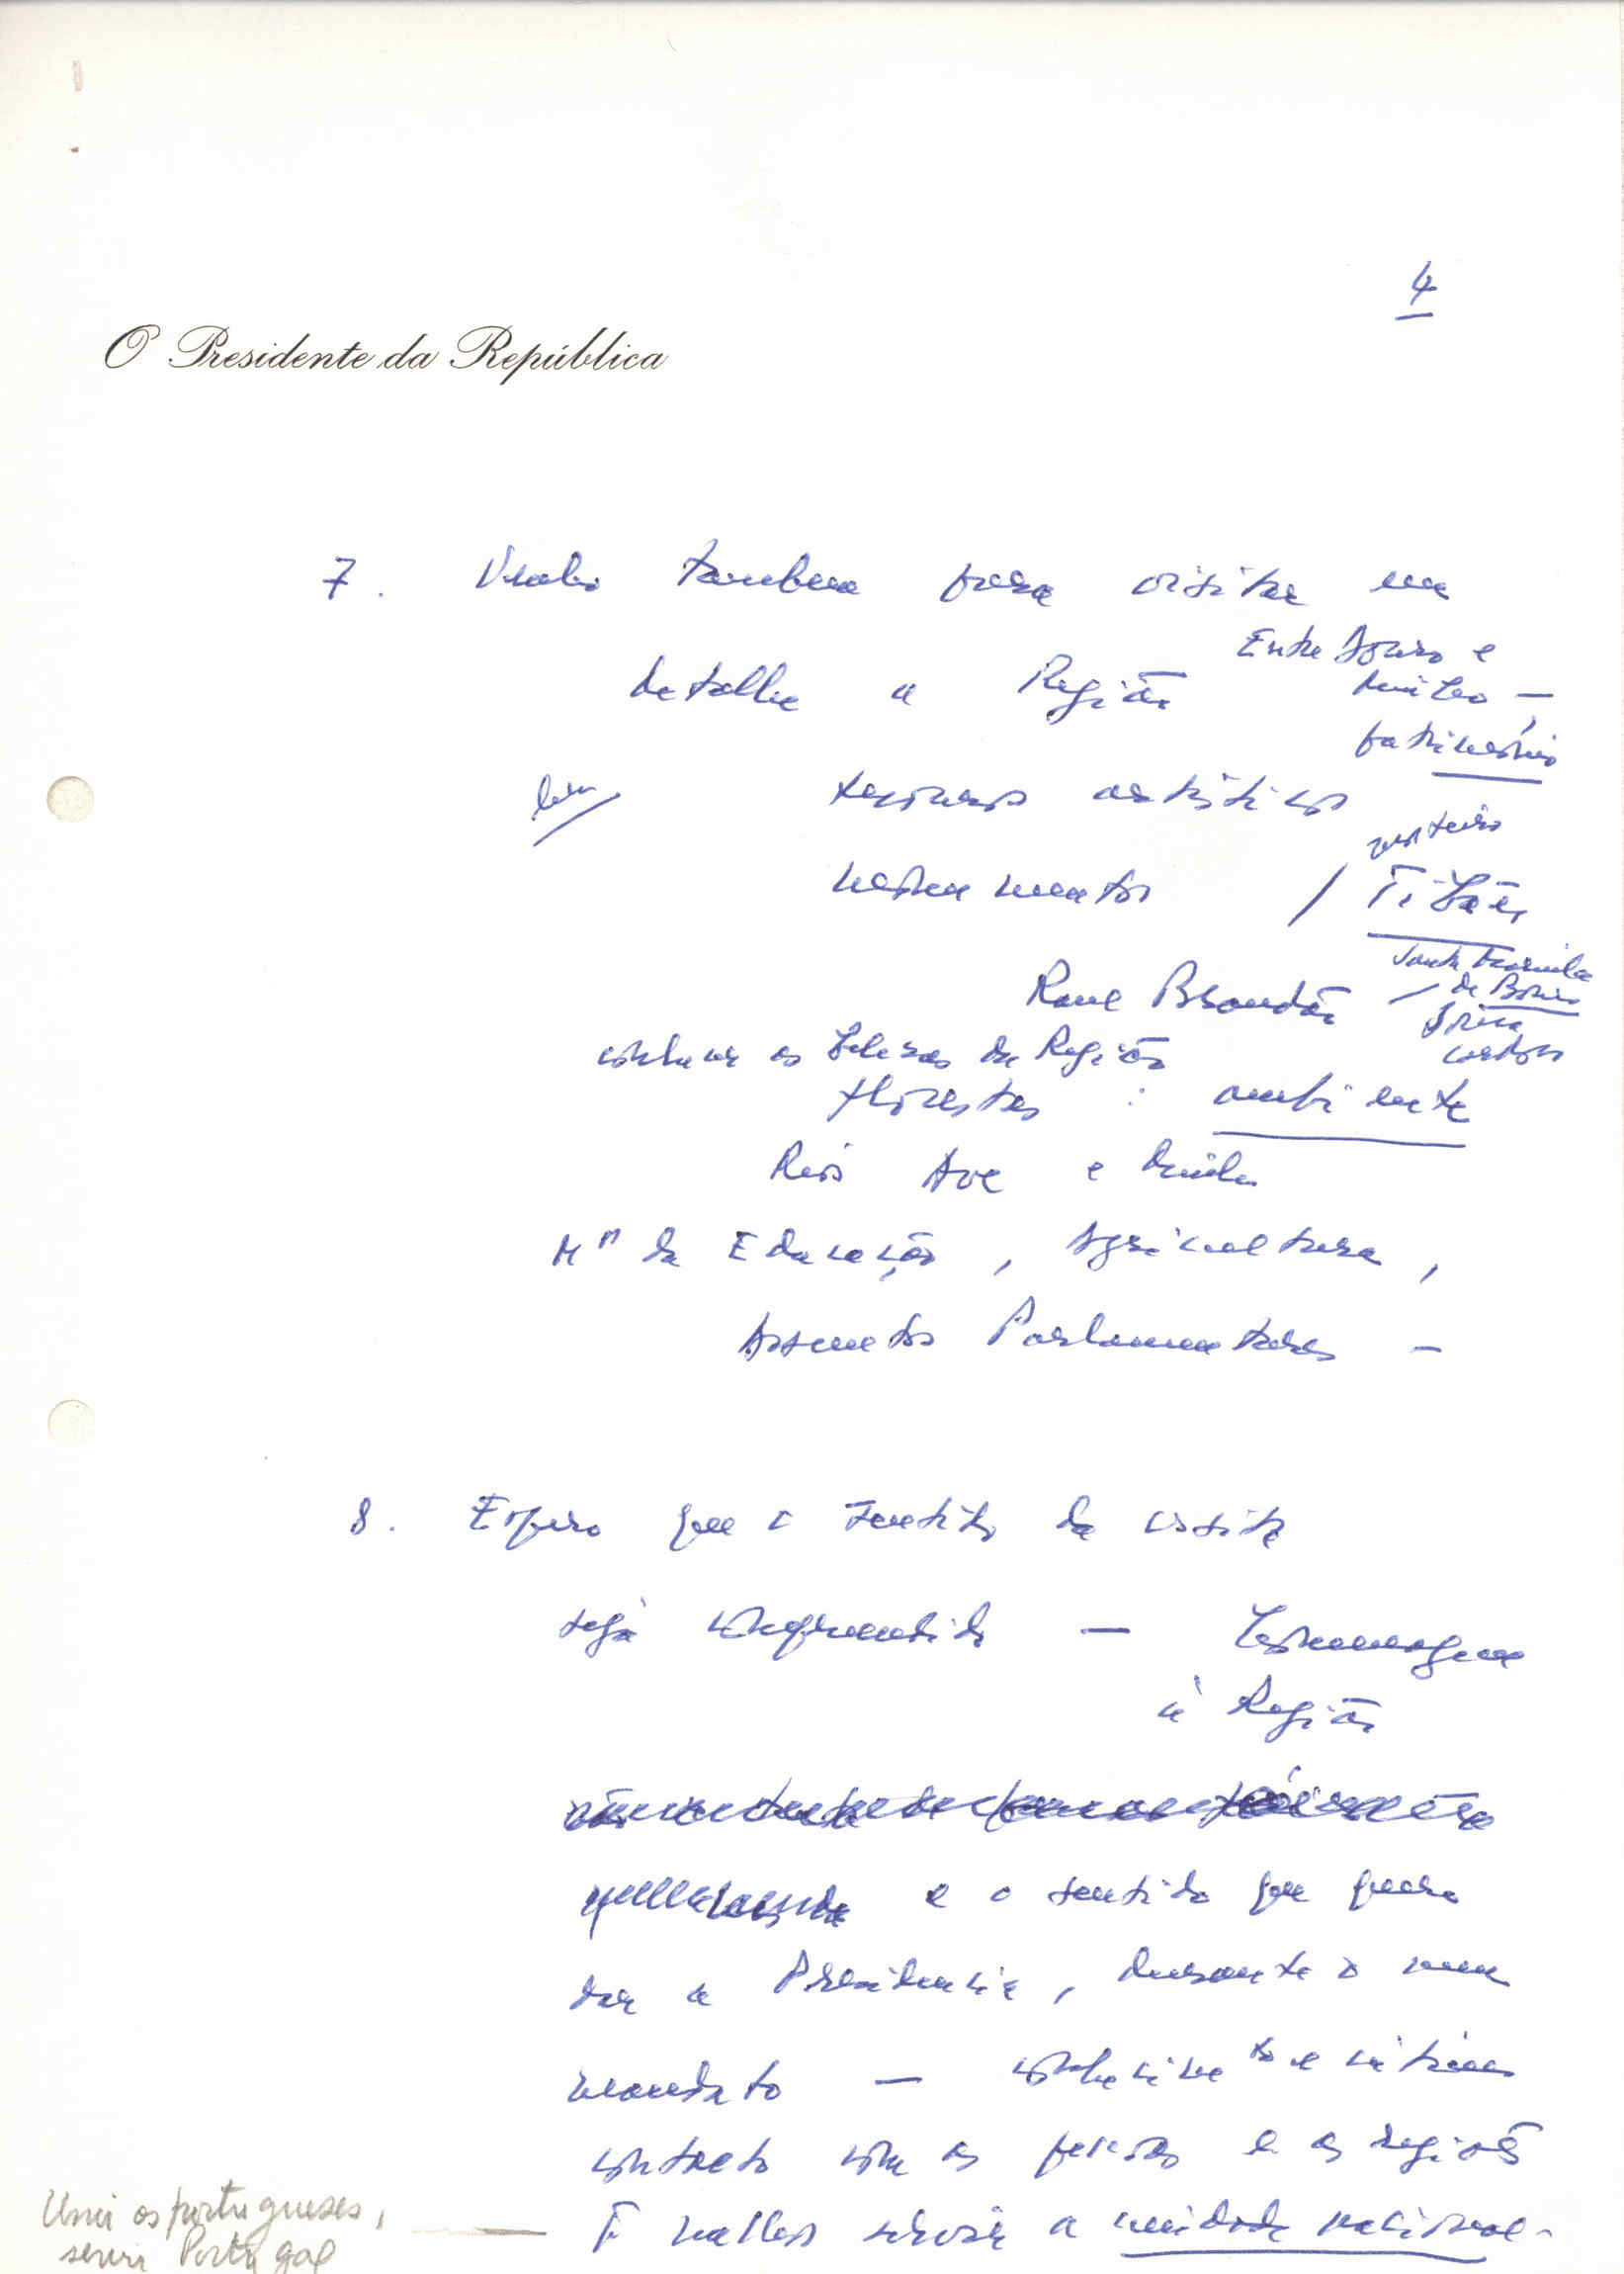 4
O Presidente da República
7. Venho também para visitar em
detalhe a Região Entre Douro e
Minho —
património
bem
tesouros artísticos
monumentos / mosteiro
Tibães
Raul Brandão — Santa Marinha
da
conhecer as belezas da Região
florestas : ambiente
Rios Ave e Minho
Mº da Educação, Agricultura,
Assuntos Parlamentares —
8. Espero que o sentido da visita
seja compreendido — homenagem
à Região
e o sentido que quero
dar a Presidência, durante o meu
mandato — conhecimento e íntimo
contacto com as pessoas e as regiões
É melhor servir a unidade nacional —
Unir os portugueses,
servir Portugal